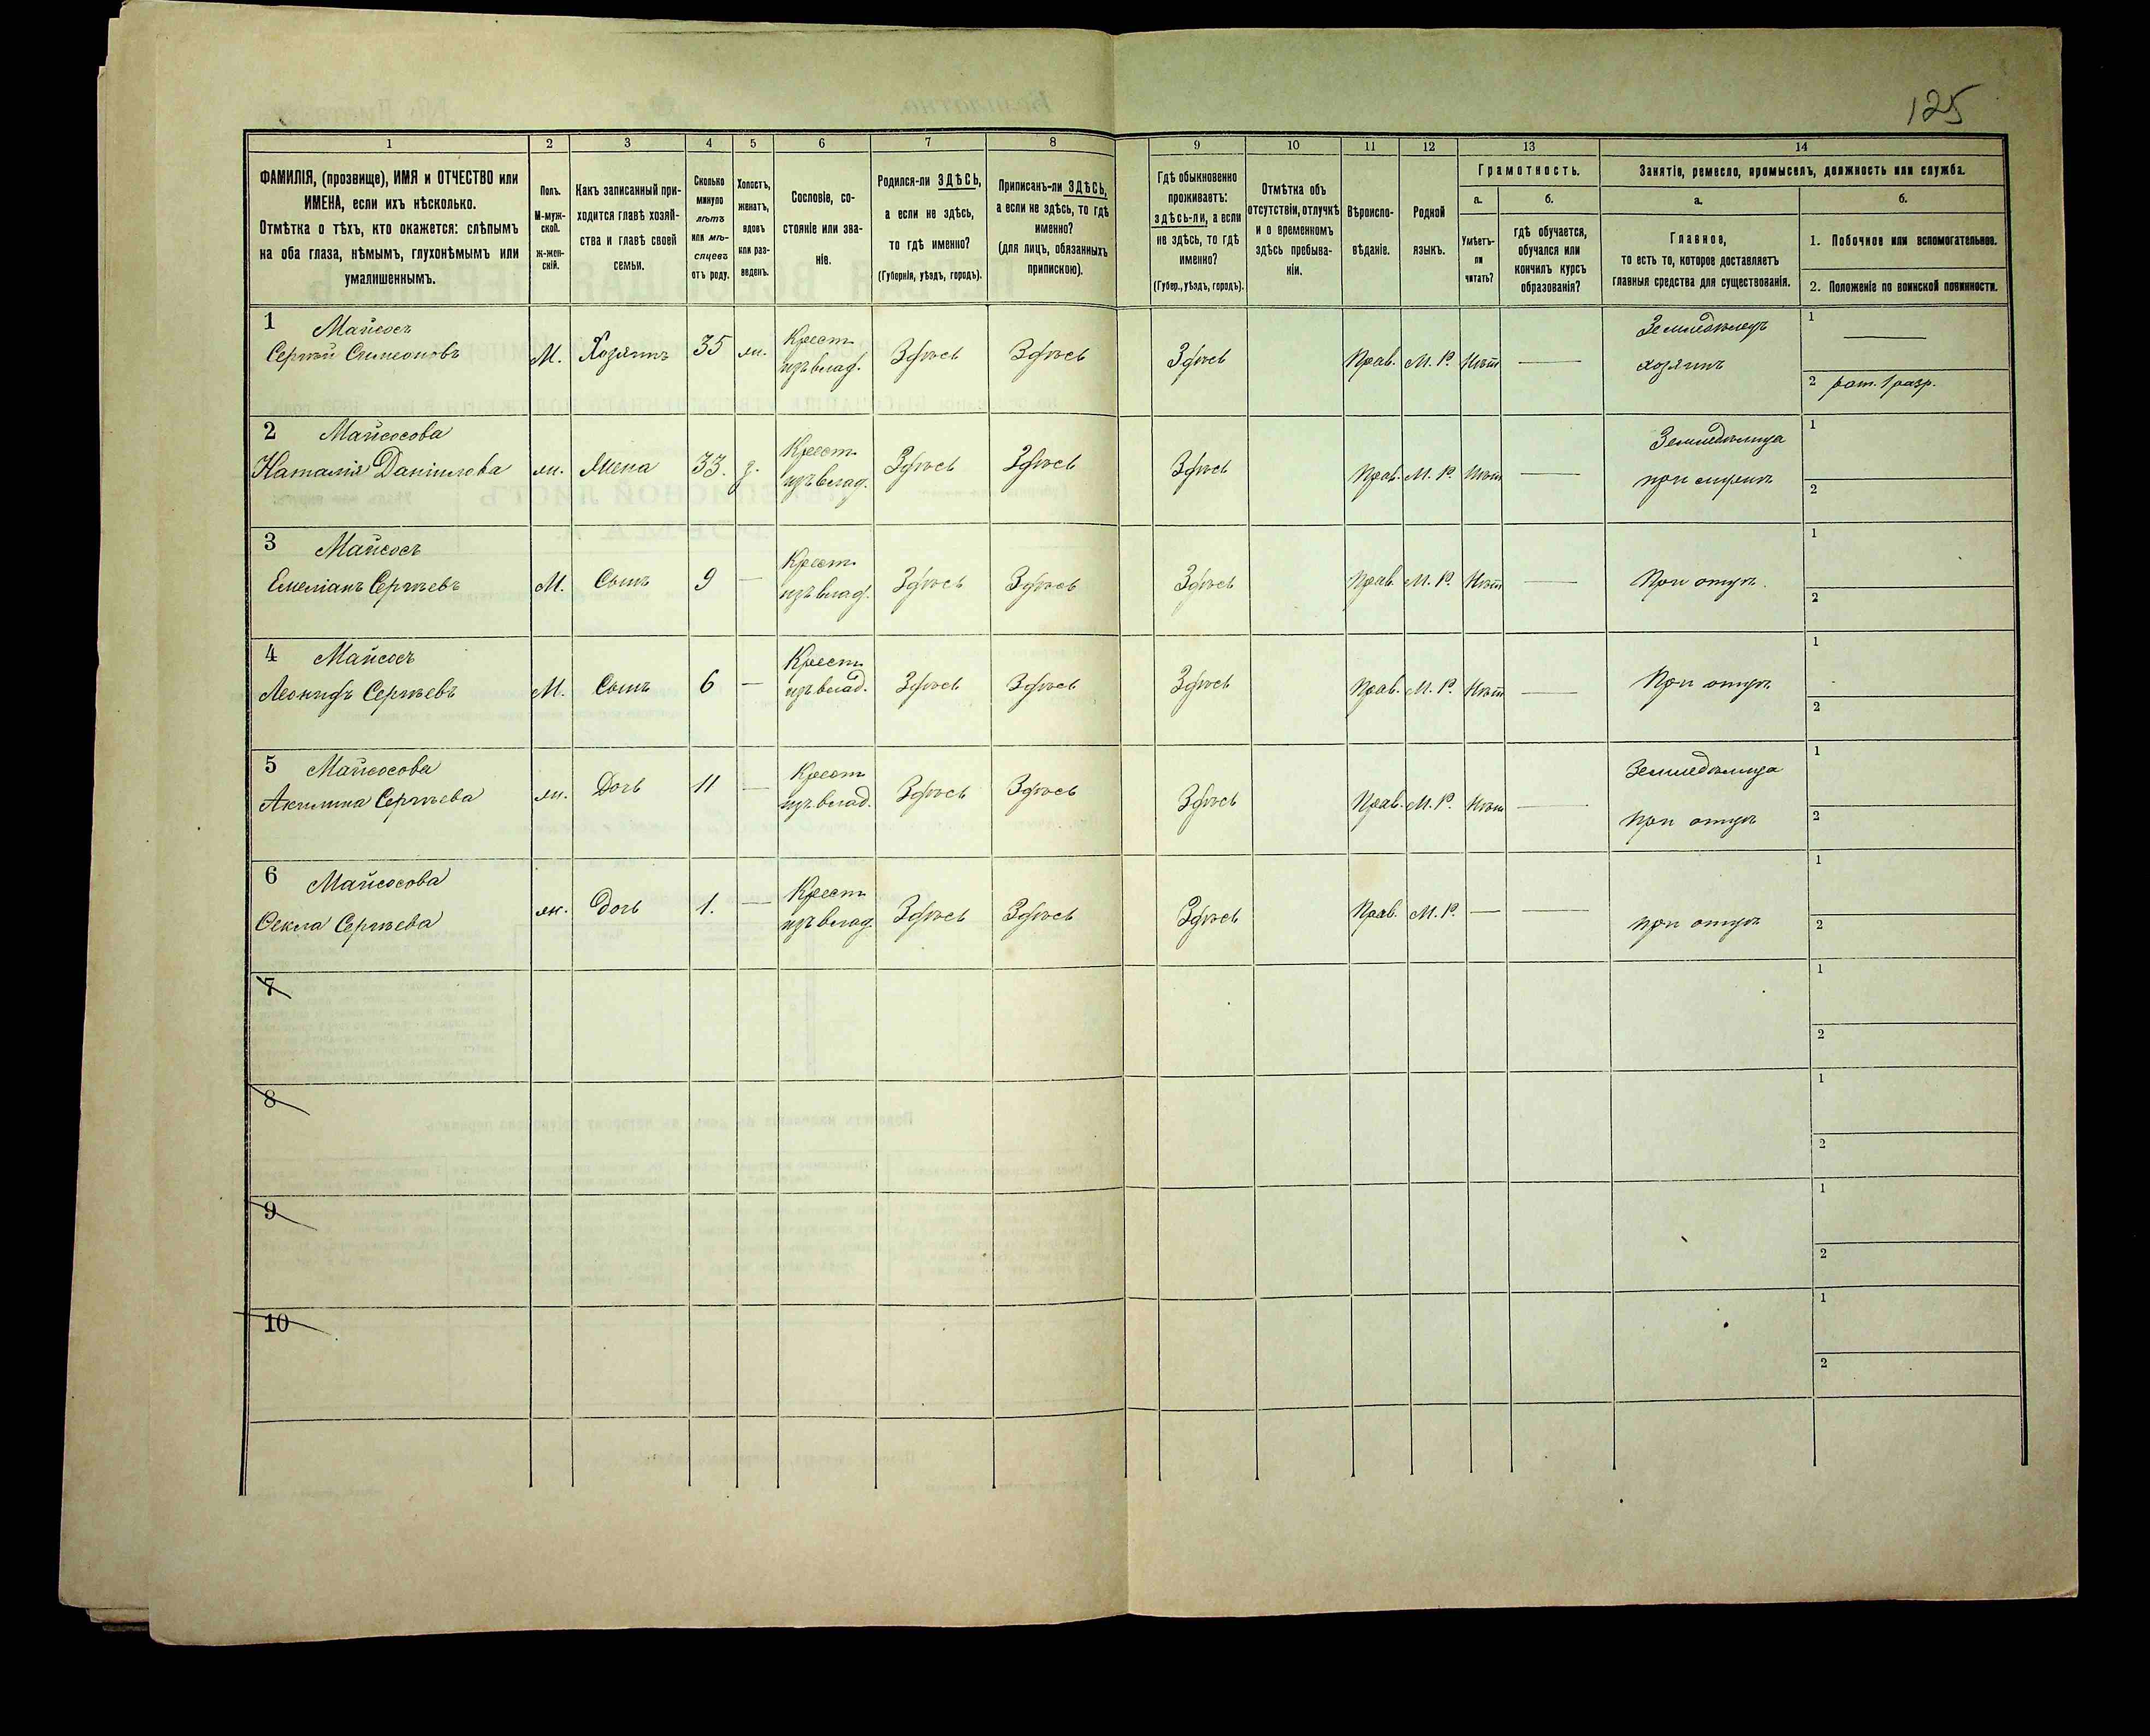 125
1 2 3 4 5 6 7 8 9 10 11 12 13 14
ФАМИЛІЯ, (прозвище), ИМЯ и ОТЧЕСТВО или
ИМЕНА, если ихъ нѣсколько.
Отмѣтка о тѣхъ, кто окажется: слѣпымъ
на оба глаза, нѣмымъ, глухонѣмымъ или
умалишеннымъ.
Полъ.
М-муж-
ской.
ж-жен-
скій.
Какъ записанный при-
ходится главѣ хозяй-
ства и главѣ своей
семьи.
Сколько
минуло
лѣтъ
или мѣ-
сяцевъ
отъ роду.
Холостъ,
женатъ,
вдовъ
или раз-
веденъ.
Сословіе, со-
стояніе или зва-
ніе.
Родился-ли ЗДѢСЬ,
а если не здѣсь,
то гдѣ именно?
(Губернія, уѣздъ, городъ).
Приписанъ-ли ЗДѢСЬ,
а если не здѣсь, то гдѣ
именно?
(для лицъ, обязанныхъ
припискою).
Гдѣ обыкновенно
проживаетъ:
здѣсь-ли, а если
не здѣсь, то гдѣ
именно?
(Губер., уѣздъ, городъ).
Отмѣтка объ
отсутствіи, отлучкѣ
и о временномъ
здѣсь пребыва-
ніи.
Вѣроиспо-
вѣданіе.
Родной
языкъ.
Грамотность.
а.
Умѣетъ-
ли
читать?
б.
гдѣ обучается,
обучался или
кончилъ курсъ
образованія?
Занятіе, ремесло, промыселъ, должность или служба.
а.
Главное,
то есть то, которое доставляетъ
главныя средства для существованія.
б.
1. Побочное или вспомогательное.
2. Положеніе по воинской повинности.
1 Майсосъ Крест. Земледѣлецъ 1 —
Сергѣй Симеоновъ М. Хозяинъ 35 ж. изъ влад. Здѣсь Здѣсь Здѣсь Прав. М. Р. Нѣт — хозяинъ 2 рат. 1 разр.
2 Майсосова Крест. Земледѣлица 1
Наталія Даніилова ж. Жена 33. з. изъ влад. Здѣсь Здѣсь Здѣсь Прав. М. Р. Нѣт — при 2
3 Майсосъ Крест. 1
Емеліанъ Сергѣевъ М. Сынъ 9 — изъ влад. Здѣсь Здѣсь Здѣсь Прав. М. Р. Нѣт — При отцѣ 2
4 Майсосъ Крест. 1
Леонидъ Сергѣевъ М. Сынъ 6 — изъ влад. Здѣсь Здѣсь Здѣсь Прав. М. Р. Нѣт — При отцѣ 2
5 Майсосова Крест. Земледѣлица 1
Акилина Сергѣева ж. Дочь 11 — изъ влад. Здѣсь Здѣсь Здѣсь Прав. М. Р. Нѣт — при отцѣ 2
6 Майсосова Крест. 1
Ѳекла Сергѣева ж. Дочь 1. — изъ влад. Здѣсь Здѣсь Здѣсь Прав. М. Р. — — при отцѣ 2
7 1
2
8 1
2
9 1
2
10 1
2